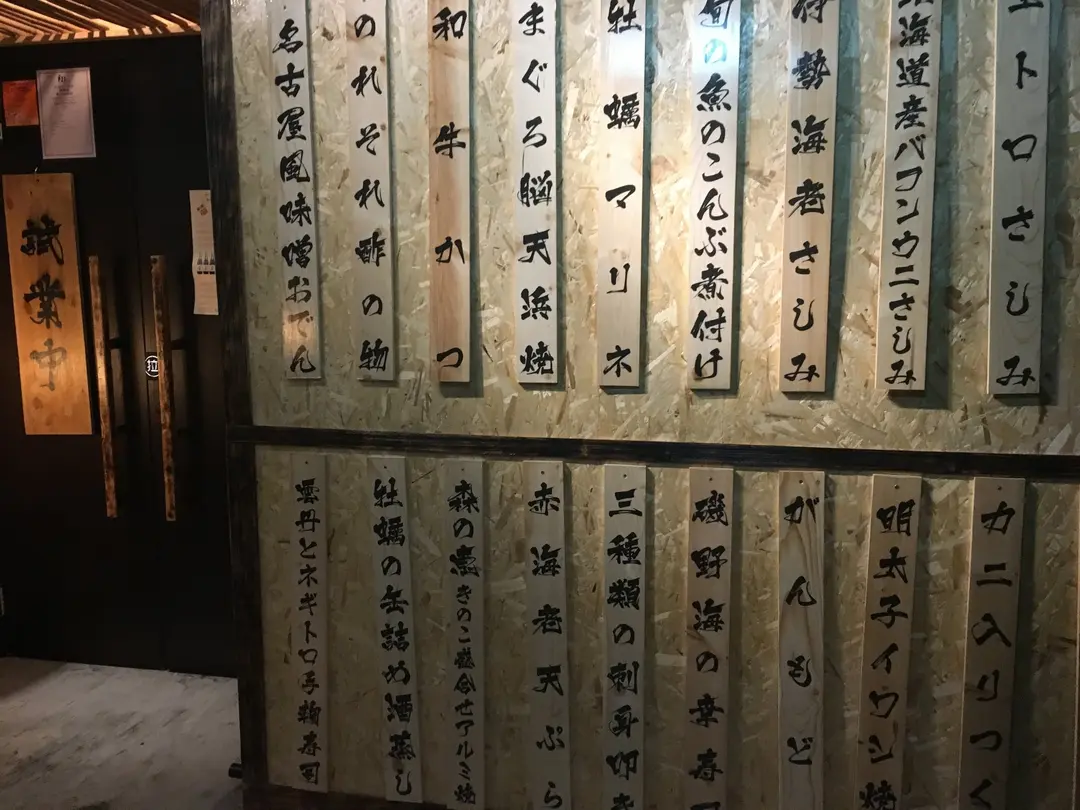 トロさしみ
海道産バフンウニさしみ
伊勢海老さしみ
旬の魚のこんぶ煮付け
牡蠣マリネ
まぐろ脳天浜焼
和牛かつ
のれそれ酢の物
名古屋風味噌おでん
カニ入りつく
明太子イワシ焼
がんもど
磯野海の幸寿
三種類の刺身叩き
赤海老天ぷら
森の恵きのこ盛合せアルミ焼
牡蠣の缶詰め酒蒸し
雲丹とネギトロ手鞠寿司
試業中
拉